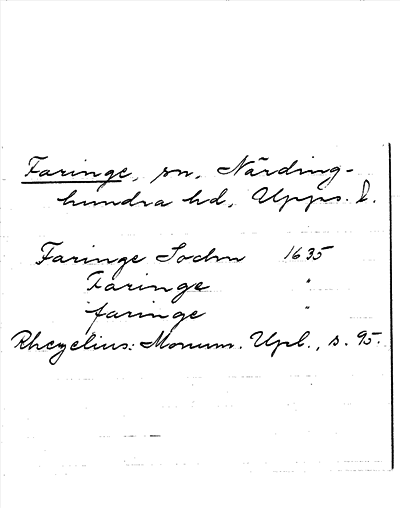 Faringe, sn, Närding-
hundra hd, Upps. l.
Faringe Sochn 1635
Faringe "
faringe "
Rhezelius: Monum. Upl., s. 95.